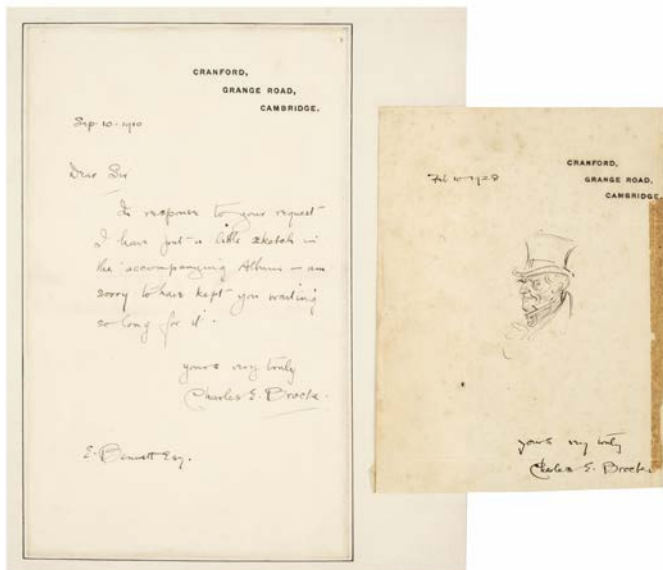 CRANFORD,
GRANGE ROAD,
CAMBRIDGE.
Sep 10. 1910
Dear Sir
In response to your request
I have put a little sketch in
the accompanying Album – am
sorry to have kept you waiting
so long for it.
yours very truly
Charles E. Brock.
E. Bennett Esq.
CRANFORD,
GRANGE ROAD,
CAMBRIDGE.
Feb 10
yours very truly
Charles E. Brock